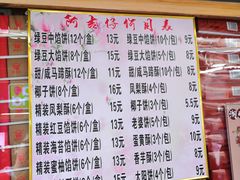 阿嬷仔价目表
绿豆中馅饼(12个/盒) 13元
绿豆大馅饼(8个/盒) 15元
甜/咸马蹄酥(12个/盒)
椰子饼(8个/盒) 16元
精装凤梨酥(6个/盒) 13元
精装红豆馅饼(6个/盒) 11元
精装海苔馅饼(6个/盒) 10元
精装蜜柚馅饼(6个/盒) 13元
绿豆中馅饼(10个/包) 9元
绿豆大馅饼(5个/包) 9元
甜/咸马蹄酥(5个/包)
凤梨酥(4个/包) 8元
椰子饼(3个/包) 5.5元
老婆饼(5个/包) 9元
蛋黄酥(3个/包) 9元
香芋酥(3个/包)
太阳饼(4个/包) 9元